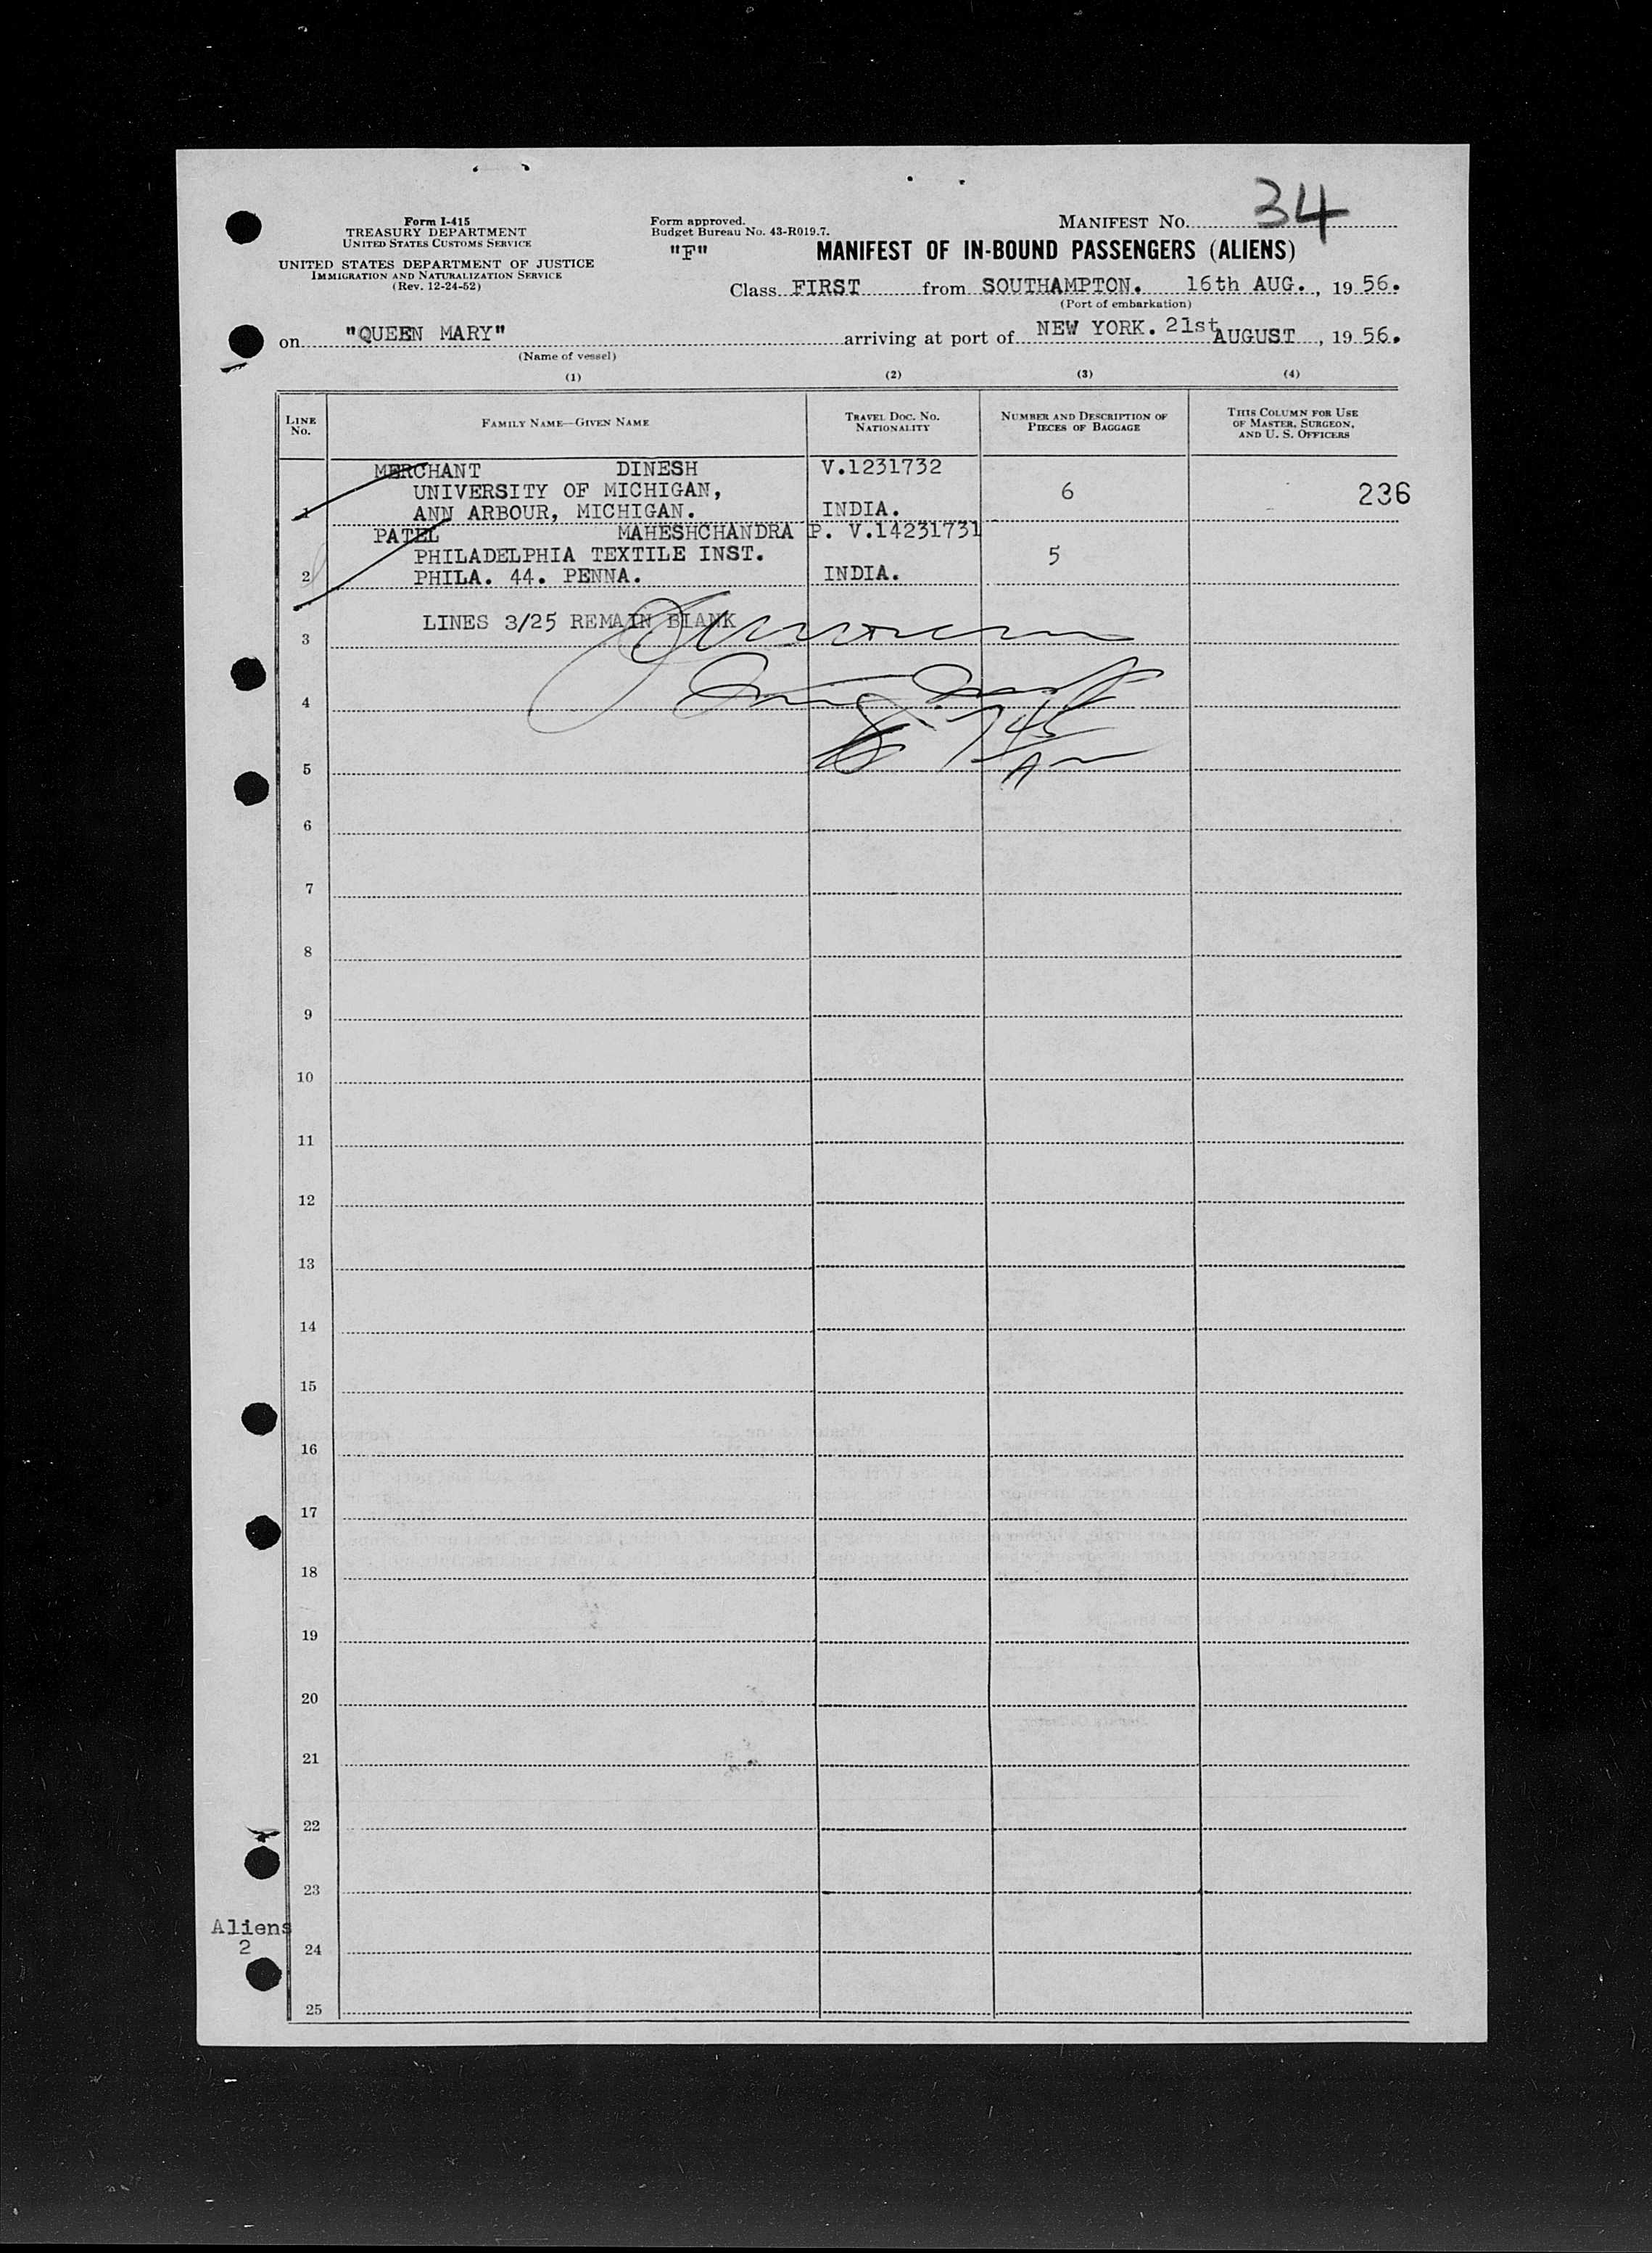 34
Form I-415
TREASURY DEPARTMENT
UNITED STATES CUSTOMS SERVICE
UNITED STATES DEPARTMENT OF JUSTICE
IMMIGRATION AND NATURALIZATION SERVICE
(Rev. 12-24-52)
Form approved.
Budget Bureau No. 43-R019.7.
MANIFEST No.
"F" MANIFEST OF IN-BOUND PASSENGERS (ALIENS)
Class FIRST from SOUTHAMPTON. 16th AUG., 19 56.
(Port of embarkation)
on "QUEEN MARY" arriving at port of NEW YORK. 21st AUGUST, 19 56.
(Name of vessel)
(1) (2) (3) (4)
LINE No. FAMILY NAME—GIVEN NAME TRAVEL DOC. No. NATIONALITY NUMBER AND DESCRIPTION OF PIECES OF BAGGAGE THIS COLUMN FOR USE OF MASTER, SURGEON, AND U. S. OFFICERS
MERCHANT DINESH V.1231732
UNIVERSITY OF MICHIGAN, 6 236
1 ANN ARBOUR, MICHIGAN. INDIA.
PATEL MAHESHCHANDRA P. V.14231731
PHILADELPHIA TEXTILE INST. 5
2 PHILA. 44. PENNA. INDIA.
LINES 3/25 REMAIN BLANK
3
4
745
5
6
7
8
9
10
11
12
13
14
15
16
17
18
19
20
21
22
23
Aliens
2
24
25